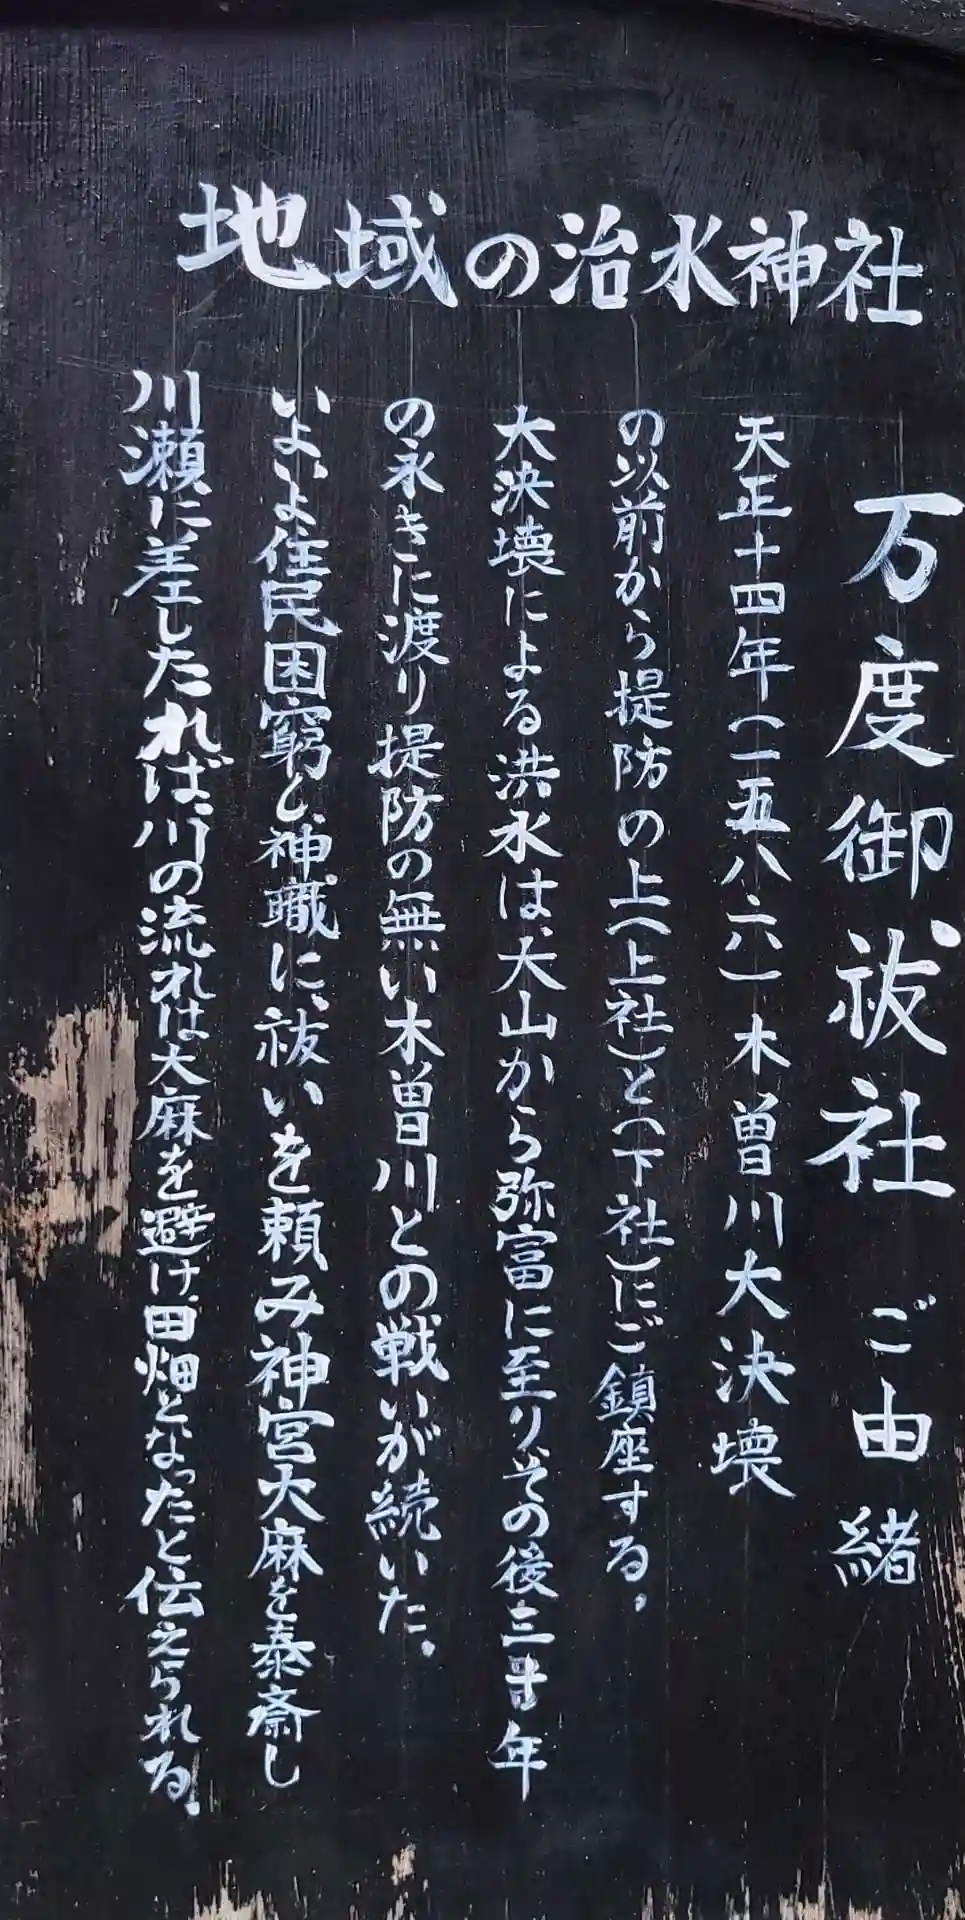 地域の治水神社
万度御祓社 ご由緒
天正十四年(一五八六)木曽川大決壊
の以前から提防の上(上社)と(下社)にご鎮座する。
大決壊による洪水は、大山から弥富に至りその後三百年
の永きに渡り提防の無い木曽川との戦いが続いた。
いよいよ住民困窮し、神職に、祓いを頼み神宮大麻を奉斎し
川瀬に差したれば、川の流れは大麻を避け、田畑となったと伝えられる。